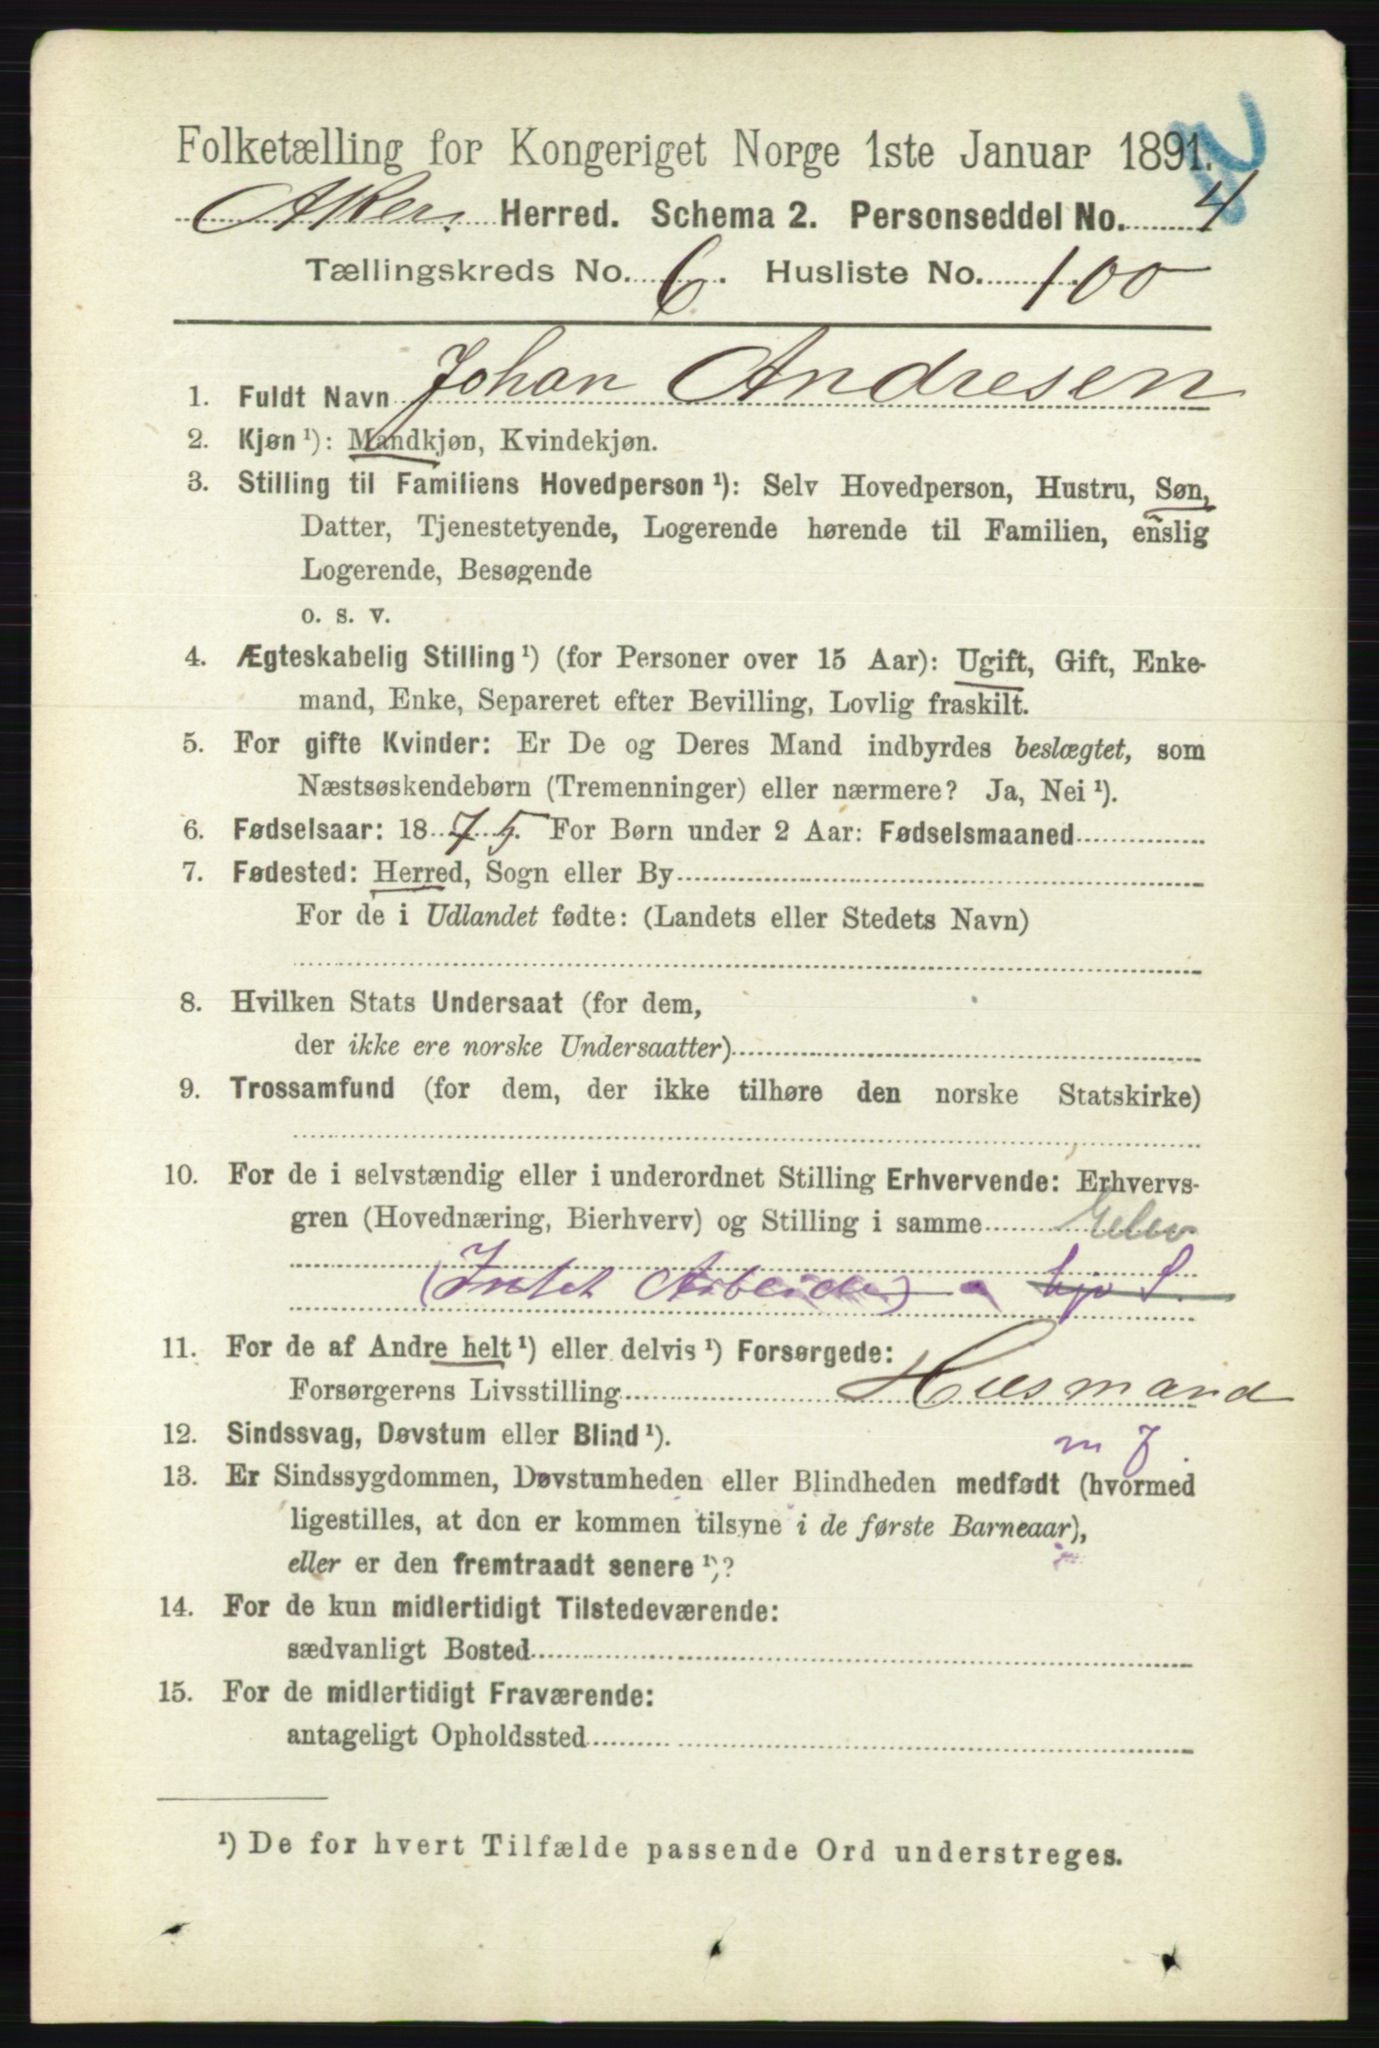 Folketælling for Kongeriget Norge 1ste Januar 1891.
Aker Herred. Schema 2. Personseddel No. 4
Tællingskreds No. 6. Husliste No. 100
1. Fuldt Navn Johan Andresen
2. Kjøn ¹): Mandkjøn, Kvindekjøn.
3. Stilling til Familiens Hovedperson ¹): Selv Hovedperson, Hustru, Søn,
Datter, Tjenestetyende, Logerende hørende til Familien, enslig
Logerende, Besøgende
o. s. v.
4. Ægteskabelig Stilling ¹) (for Personer over 15 Aar): Ugift, Gift, Enke-
mand, Enke, Separeret efter Bevilling, Lovlig fraskilt.
5. For gifte Kvinder: Er De og Deres Mand indbyrdes beslægtet, som
Næstsøskendebørn (Tremenninger) eller nærmere? Ja, Nei ¹).
6. Fødselsaar: 1875. For Børn under 2 Aar: Fødselsmaaned
7. Fødested: Herred, Sogn eller By
For de i Udlandet fødte: (Landets eller Stedets Navn)
8. Hvilken Stats Undersaat (for dem,
der ikke ere norske Undersaatter)
9. Trossamfund (for dem, der ikke tilhøre den norske Statskirke)
10. For de i selvstændig eller i underordnet Stilling Erhvervende: Erhvervs-
gren (Hovednæring, Bierhverv) og Stilling i samme
(Intet Arbeide)
11. For de af Andre helt ¹) eller delvis ¹) Forsørgede:
Forsørgerens Livsstilling Husmand
12. Sindssvag, Døvstum eller Blind ¹).
13. Er Sindssygdommen, Døvstumheden eller Blindheden medfødt (hvormed
ligestilles, at den er kommen tilsyne i de første Barneaar),
eller er den fremtraadt senere ¹)?
14. For de kun midlertidigt Tilstedeværende:
sædvanligt Bosted
15. For de midlertidigt Fraværende:
antageligt Opholdssted
¹) De for hvert Tilfælde passende Ord understreges.